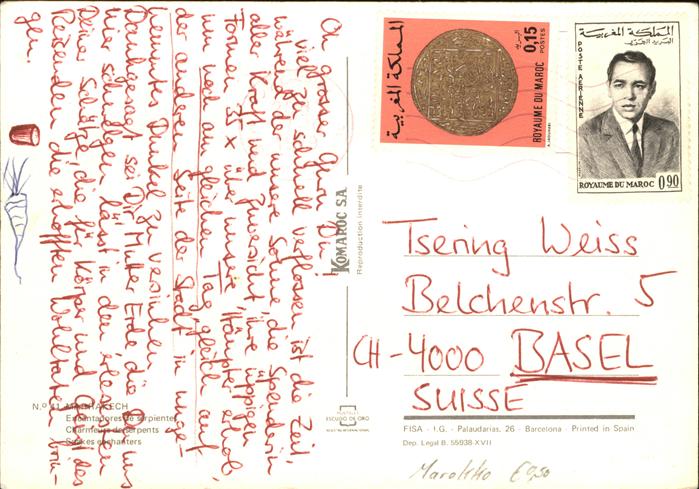 Oh grosser Guru Du!
viel zu schnell verflossen ist die Zeit,
während der unsere Sonne, die Spenderin
aller Kraft und Zuversicht, ihre üppigen
Formen IX x über unsere Häupter erhob,
um noch am gleichen Tag, gleich auf
der anderen Seite der Stadt in
Dunkel zu versinken.
Dankgesagt sei Dir, Mutter Erde, die Du uns
hier schwelgen lässt in den erlesensten
Deiner Schätze, die für Körper und Geist des
Reisenden die erhofften Wohltaten brin-
gen.
Nº 41 MARRAKECH
Encantadores de serpientes
Charmeurs de serpents
Snakes enchanters
KOMAROC S.A.
Reproduction interdite
POSTALES
ESCUDO DE ORO
المملكة المغربية
0,15
البريد
POSTES
ROYAUME DU MAROC
المملكة المغربية
البريد الجوي
POSTE AERIENNE
ROYAUME DU MAROC
0,90
Tsering Weiss
Belchenstr. 5
CH-4000 BASEL
SUISSE
FISA - I.G. - Palaudarias, 26 - Barcelona - Printed in Spain
Dep. Legal B. 55938-XVII
Marokko €9,50